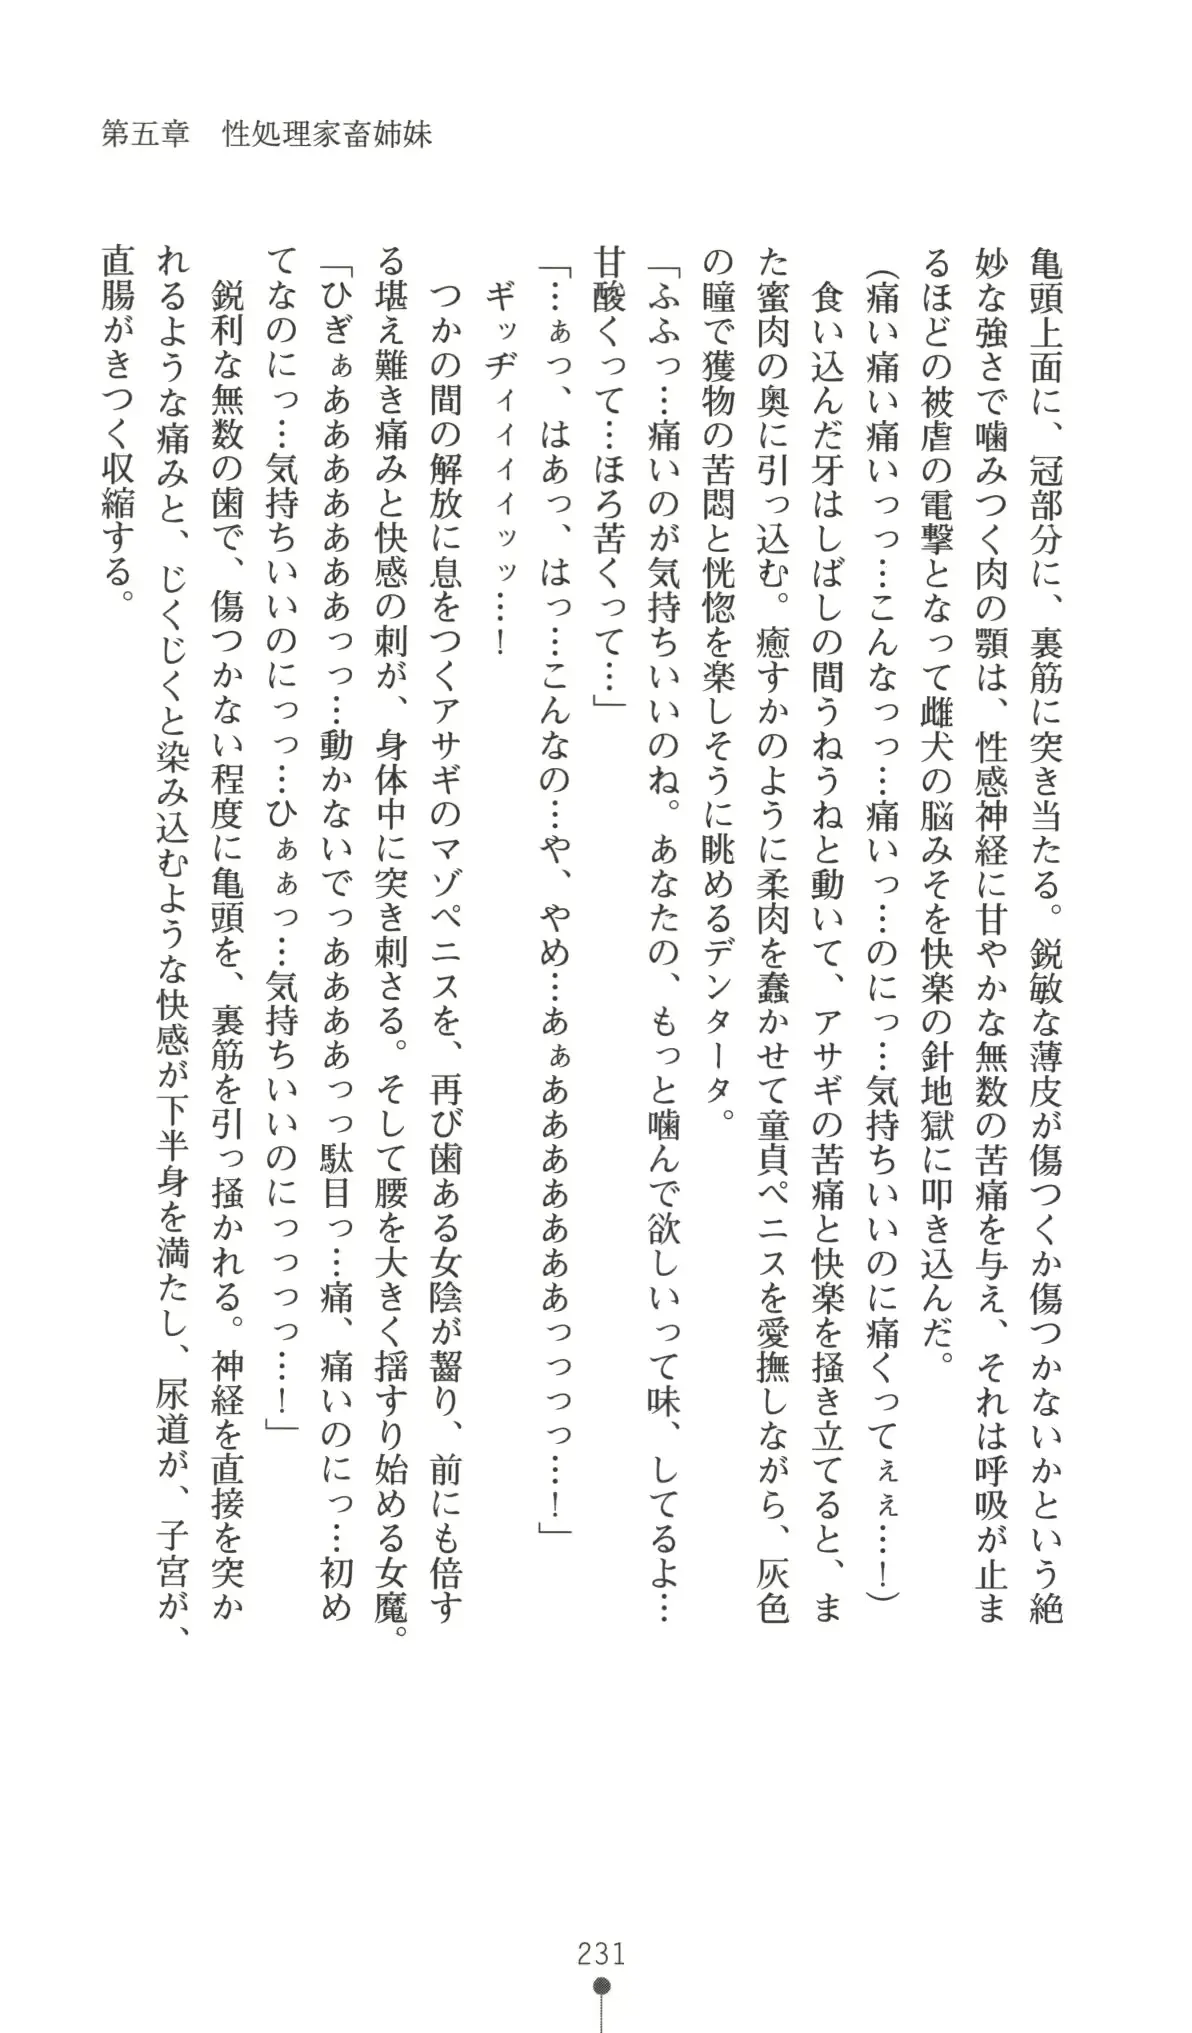 第五章　性処理家畜姉妹
亀頭上面に、冠部分に、裏筋に突き当たる。鋭敏な薄皮が傷つくか傷つかないかという絶
妙な強さで噛みつく肉の顎は、性感神経に甘やかな無数の苦痛を与え、それは呼吸が止ま
るほどの被虐の電撃となって雌犬の脳みそを快楽の針地獄に叩き込んだ。
（痛い痛い痛いっっ…こんなっっ…痛いっ…のにっ…気持ちいいのに痛くってぇぇ…！）
　食い込んだ牙はしばしの間うねうねと動いて、アサギの苦痛と快楽を掻き立てると、ま
た蜜肉の奥に引っ込む。癒すかのように柔肉を蠢かせて童貞ペニスを愛撫しながら、灰色
の瞳で獲物の苦悶と恍惚を楽しそうに眺めるデンタータ。
「ふふっ…痛いのが気持ちいいのね。あなたの、もっと噛んで欲しいって味、してるよ…
甘酸くって…ほろ苦くって…」
「…ぁっ、はあっ、はっ…こんなの…や、やめ…あぁあああああああっっっっ…！」
　ギッヂィィィィッッ…！
　つかの間の解放に息をつくアサギのマゾペニスを、再び歯ある女陰が齧り、前にも倍す
る堪え難き痛みと快感の刺が、身体中に突き刺さる。そして腰を大きく揺すり始める女魔。
「ひぎぁああああああああっっ…動かないでっああああっっ駄目っ…痛、痛いのにっ…初め
てなのにっ…気持ちいいのにっっ…ひぁぁっ…気持ちいいのにっっっっ…！」
　鋭利な無数の歯で、傷つかない程度に亀頭を、裏筋を引っ掻かれる。神経を直接を突か
れるような痛みと、じくじくと染み込むような快感が下半身を満たし、尿道が、子宮が、
直腸がきつく収縮する。
231